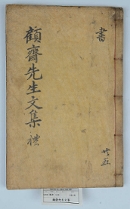 書
顧齋先生文集
禮
廿五